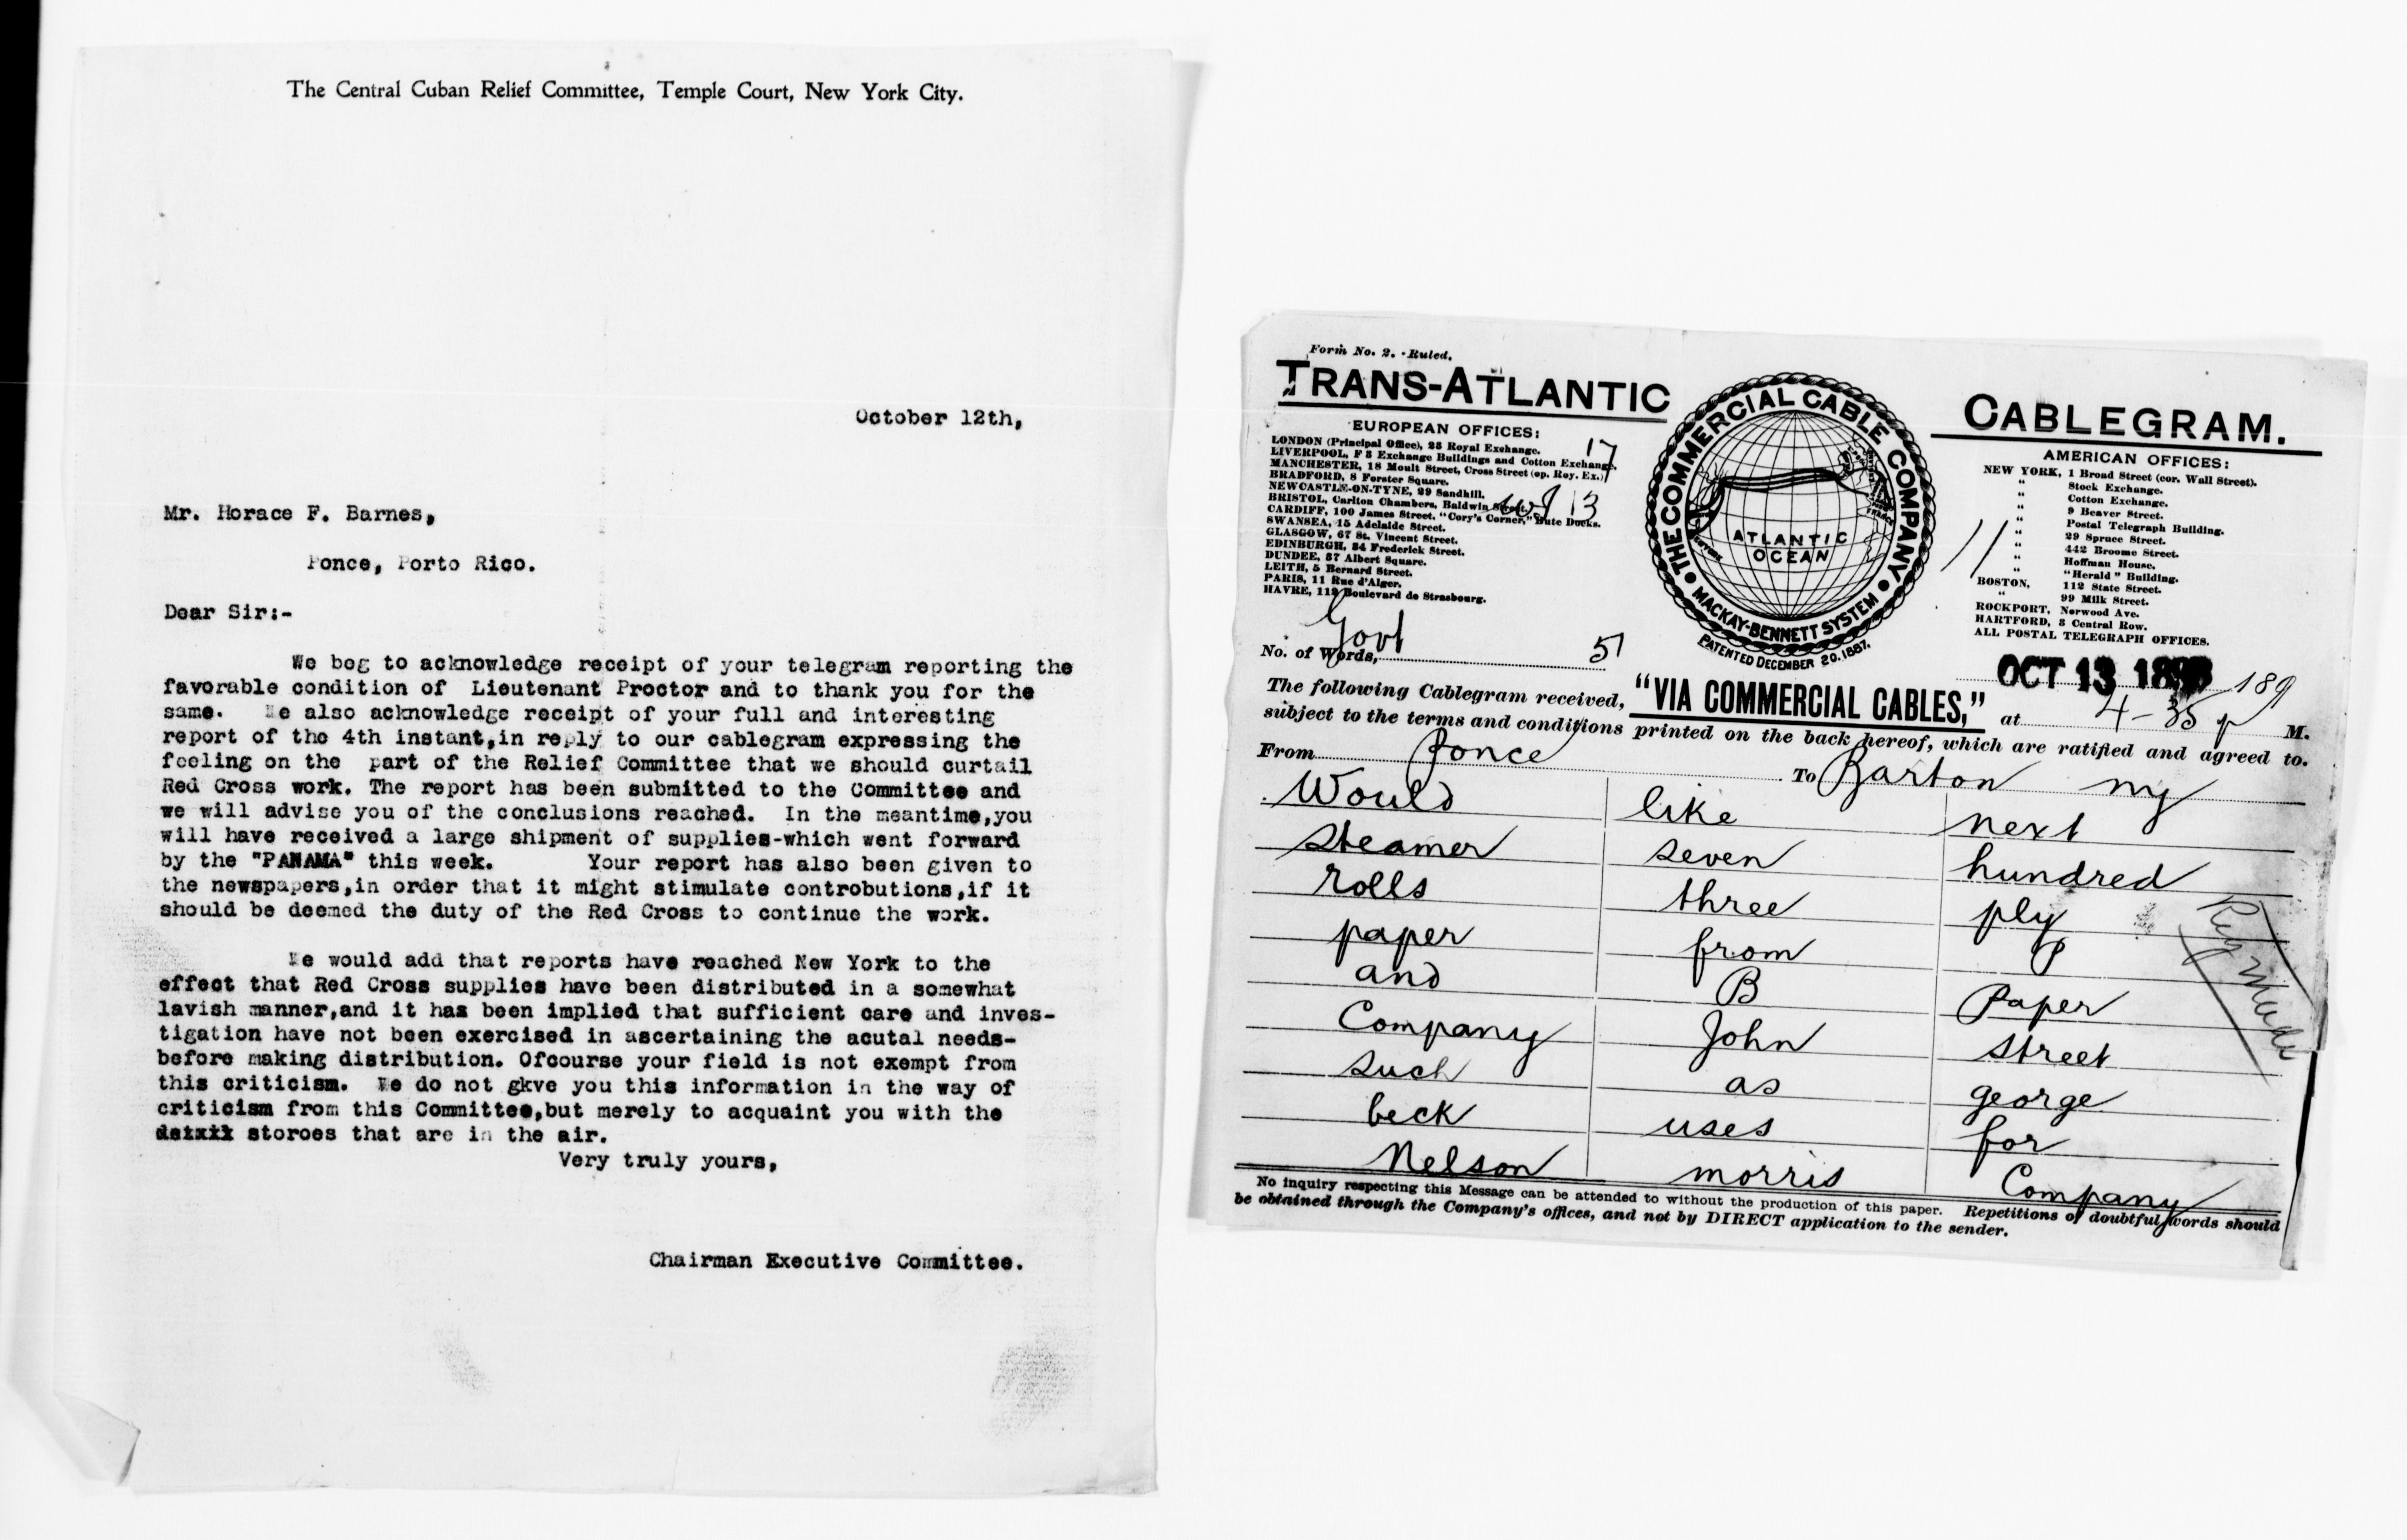 The Central Cuban Relief Committee, Temple Court, New York City.
October 12th,
Mr. Horace F. Barnes,
Ponce, Porto Rico.
Dear Sir:-
We beg to acknowledge receipt of your telegram reporting the
favorable condition of Lieutenant Proctor and to thank you for the
same. We also acknowledge receipt of your full and interesting
report of the 4th instant,in reply to our cablegram expressing the
feeling on the part of the Relief Committee that we should curtail
Red Cross work. The report has been submitted to the Committee and
we will advise you of the conclusions reached. In the meantime,you
will have received a large shipment of supplies-which went forward
by the "PANAMA" this week. Your report has also been given to
the newspapers,in order that it might stimulate controbutions,if it
should be deemed the duty of the Red Cross to continue the work.
We would add that reports have reached New York to the
effect that Red Cross supplies have been distributed in a somewhat
lavish manner,and it has been implied that sufficient care and inves-
tigation have not been exercised in ascertaining the acutal needs-
before making distribution. Ofcourse your field is not exempt from
this criticism. We do not gkve you this information in the way of
criticism from this Committee,but merely to acquaint you with the
storoes that are in the air.
Very truly yours,
Chairman Executive Committee.
Form No. 2. - Ruled.
TRANS-ATLANTIC
CABLEGRAM.
EUROPEAN OFFICES:
LONDON (Principal Office), 23 Royal Exchange.
LIVERPOOL, F 3 Exchange Buildings and Cotton Exchange.
MANCHESTER, 18 Moult Street, Cross Street (op. Roy. Ex.)
BRADFORD, 8 Forster Square.
NEWCASTLE-ON-TYNE, 29 Sandhill.
BRISTOL, Carlton Chambers, Baldwin Street.
CARDIFF, 100 James Street, "Cory's Corner," Bute Docks.
SWANSEA, 15 Adelaide Street.
GLASGOW, 67 St. Vincent Street.
EDINBURGH, 54 Frederick Street.
DUNDEE, 37 Albert Square.
LEITH, 5 Bernard Street.
PARIS, 11 Rue d'Alger.
HAVRE, 112 Boulevard de Strasbourg.
17
13
THE COMMERCIAL CABLE COMPANY
MACKAY-BENNETT SYSTEM
ATLANTIC
OCEAN
PATENTED DECEMBER 20. 1887.
AMERICAN OFFICES:
NEW YORK, 1 Broad Street (cor. Wall Street).
" Stock Exchange.
" Cotton Exchange.
" 9 Beaver Street.
" Postal Telegraph Building.
" 29 Spruce Street.
" 442 Broome Street.
" Hoffman House.
" "Herald" Building.
BOSTON, 112 State Street.
" 99 Milk Street.
ROCKPORT, Norwood Ave.
HARTFORD, 8 Central Row.
ALL POSTAL TELEGRAPH OFFICES.
Govt
No. of Words, 51
OCT 13 1898 189
The following Cablegram received, "VIA COMMERCIAL CABLES," at 4-35 p M.
subject to the terms and conditions printed on the back hereof, which are ratified and agreed to.
From Ponce To Barton ny
Would like next
steamer seven hundred
rolls three ply
paper from P
and B Paper
Company John street
such as george
beck uses for
Nelson morris Company
No inquiry respecting this Message can be attended to without the production of this paper. Repetitions of doubtful words should
be obtained through the Company's offices, and not by DIRECT application to the sender.